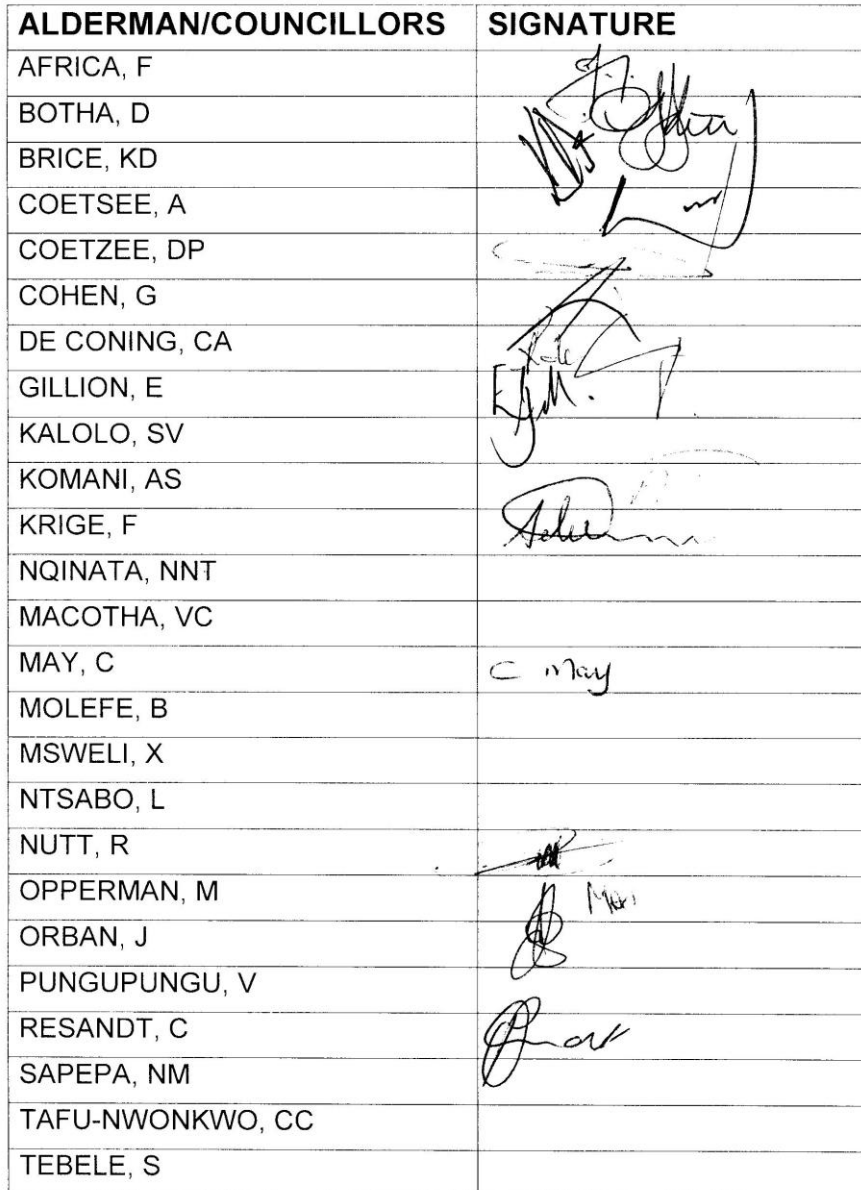 ALDERMAN/COUNCILLORS SIGNATURE
AFRICA, F
BOTHA, D
BRICE, KD
COETSEE, A
COETZEE, DP
COHEN, G
DE CONING, CA
GILLION, E
KALOLO, SV
KOMANI, AS
KRIGE, F
NQINATA, NNT
MACOTHA, VC
MAY, C C May
MOLEFE, B
MSWELI, X
NTSABO, L
NUTT, R
OPPERMAN, M
ORBAN, J
PUNGUPUNGU, V
RESANDT, C
SAPEPA, NM
TAFU-NWONKWO, CC
TEBELE, S